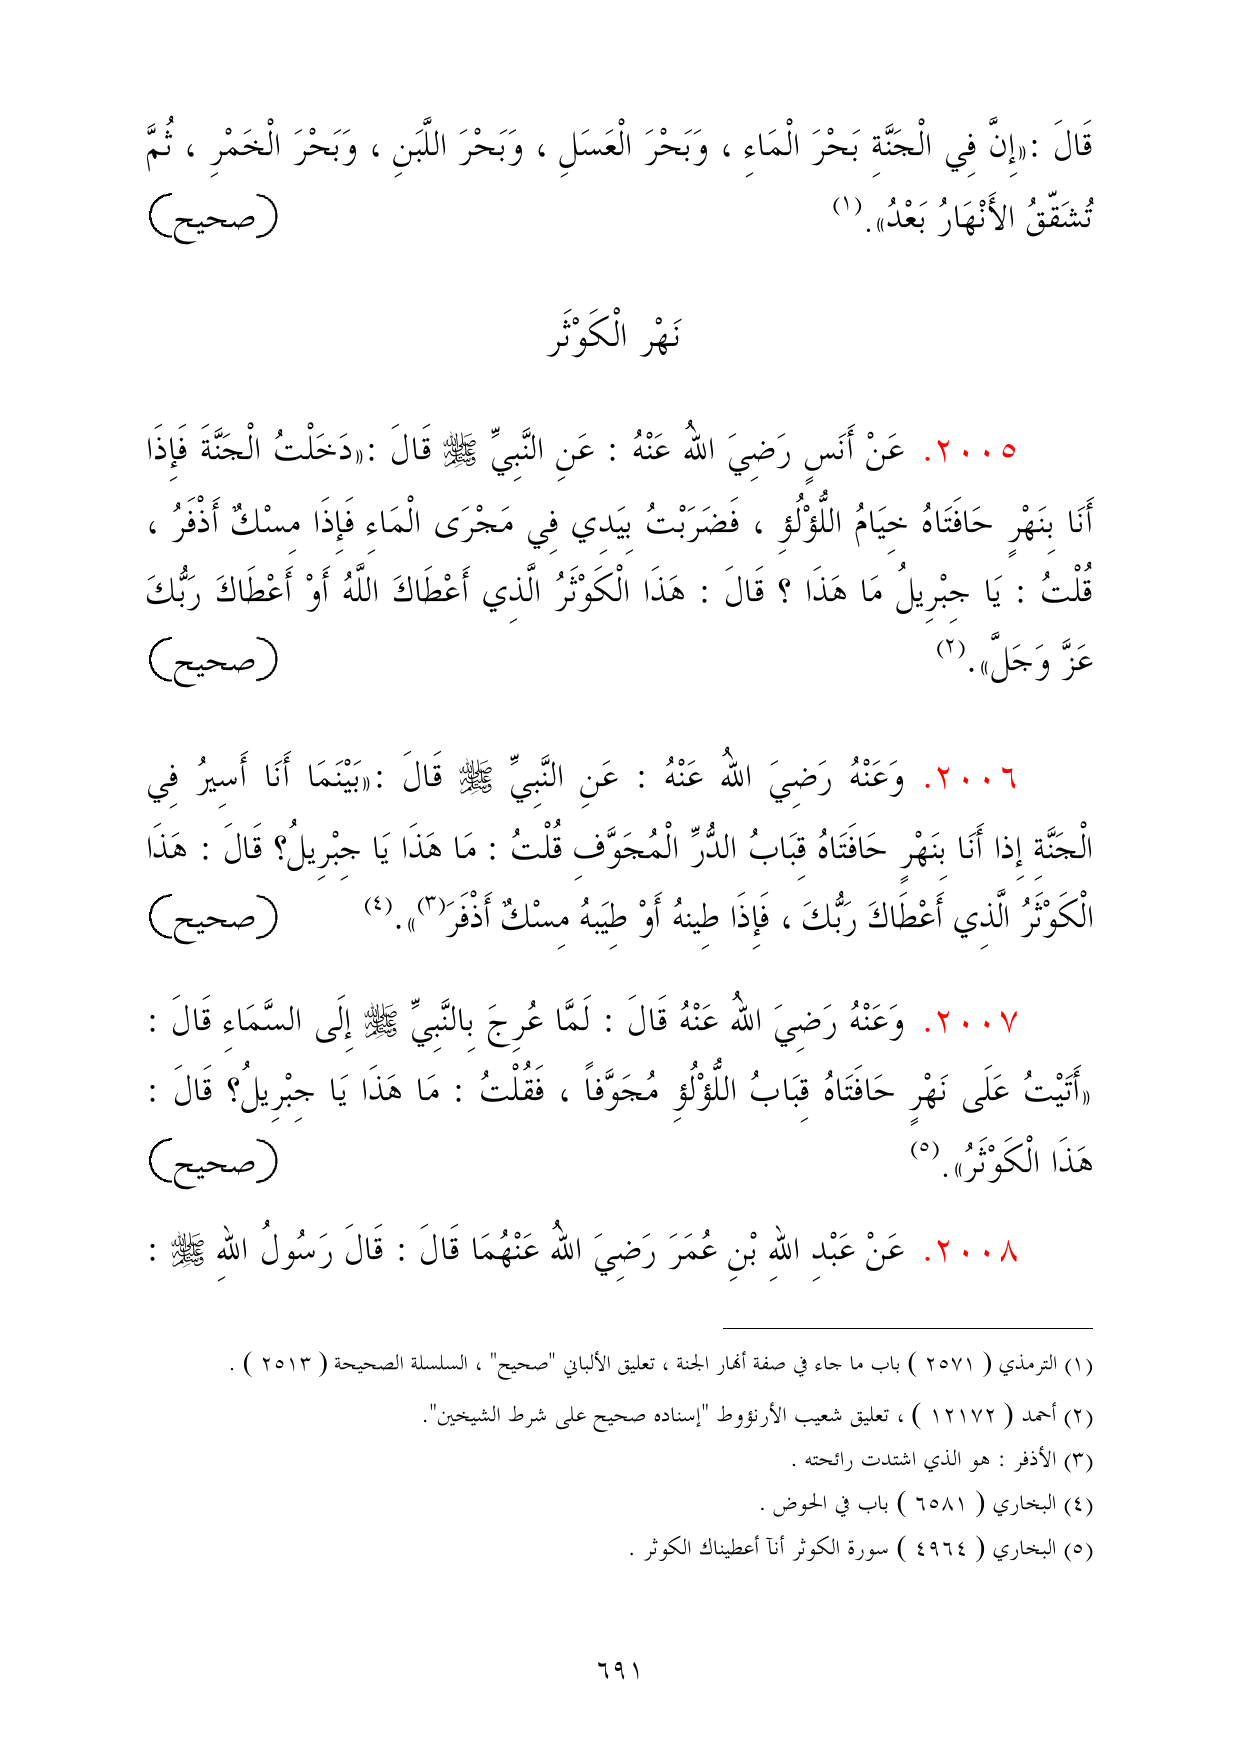 قَالَ :«إِنَّ فِي الْجَنَّةِ بَحْرَ الْمَاءِ ، وَبَحْرَ الْعَسَلِ ، وَبَحْرَ اللَّبَنِ ، وَبَحْرَ الْخَمْرِ ، ثُمَّ
تُشَقَّقُ الأَنْهَارُ بَعْدُ».(١) (صحيح)
نَهْر الْكَوْثَر
٢٠٠٥. عَنْ أَنَسٍ رَضِيَ اللهُ عَنْهُ : عَنِ النَّبِيِّ ﷺ قَالَ :«دَخَلْتُ الْجَنَّةَ فَإِذَا
أَنَا بِنَهْرٍ حَافَتَاهُ خِيَامُ اللُّؤْلُؤِ ، فَضَرَبْتُ بِيَدِي فِي مَجْرَى الْمَاءِ فَإِذَا مِسْكٌ أَذْفَرُ ،
قُلْتُ : يَا جِبْرِيلُ مَا هَذَا ؟ قَالَ : هَذَا الْكَوْثَرُ الَّذِي أَعْطَاكَ اللَّهُ أَوْ أَعْطَاكَ رَبُّكَ
عَزَّ وَجَلَّ».(٢) (صحيح)
٢٠٠٦. وَعَنْهُ رَضِيَ اللهُ عَنْهُ : عَنِ النَّبِيِّ ﷺ قَالَ :«بَيْنَمَا أَنَا أَسِيرُ فِي
الْجَنَّةِ إِذا أَنَا بِنَهْرٍ حَافَتَاهُ قِبَابُ الدُّرِّ الْمُجَوَّفِ قُلْتُ : مَا هَذَا يَا جِبْرِيلُ؟ قَالَ : هَذَا
الْكَوْثَرُ الَّذِي أَعْطَاكَ رَبُّكَ ، فَإِذَا طِينهُ أَوْ طِيَبهُ مِسْكٌ أَذْفَرَ(٣)».(٤) (صحيح)
٢٠٠٧. وَعَنْهُ رَضِيَ اللهُ عَنْهُ قَالَ : لَمَّا عُرِجَ بِالنَّبِيِّ ﷺ إِلَى السَّمَاءِ قَالَ :
«أَتَيْتُ عَلَى نَهْرٍ حَافَتَاهُ قِبَابُ اللُّؤْلُؤِ مُجَوَّفاً ، فَقُلْتُ : مَا هَذَا يَا جِبْرِيلُ؟ قَالَ :
هَذَا الْكَوْثَرُ».(٥) (صحيح)
٢٠٠٨. عَنْ عَبْدِ اللهِ بْنِ عُمَرَ رَضِيَ اللهُ عَنْهُمَا قَالَ : قَالَ رَسُولُ اللهِ ﷺ :
(١) الترمذي ( ٢٥٧١ ) باب ما جاء في صفة أنهار الجنة ، تعليق الألباني "صحيح" ، السلسلة الصحيحة ( ٢٥١٣ ) .
(٢) أحمد ( ١٢١٧٢ ) ، تعليق شعيب الأرنؤوط "إسناده صحيح على شرط الشيخين".
(٣) الأذفر : هو الذي اشتدت رائحته .
(٤) البخاري ( ٦٥٨١ ) باب في الحوض .
(٥) البخاري ( ٤٩٦٤ ) سورة الكوثر أنآ أعطيناك الكوثر .
٦٩١